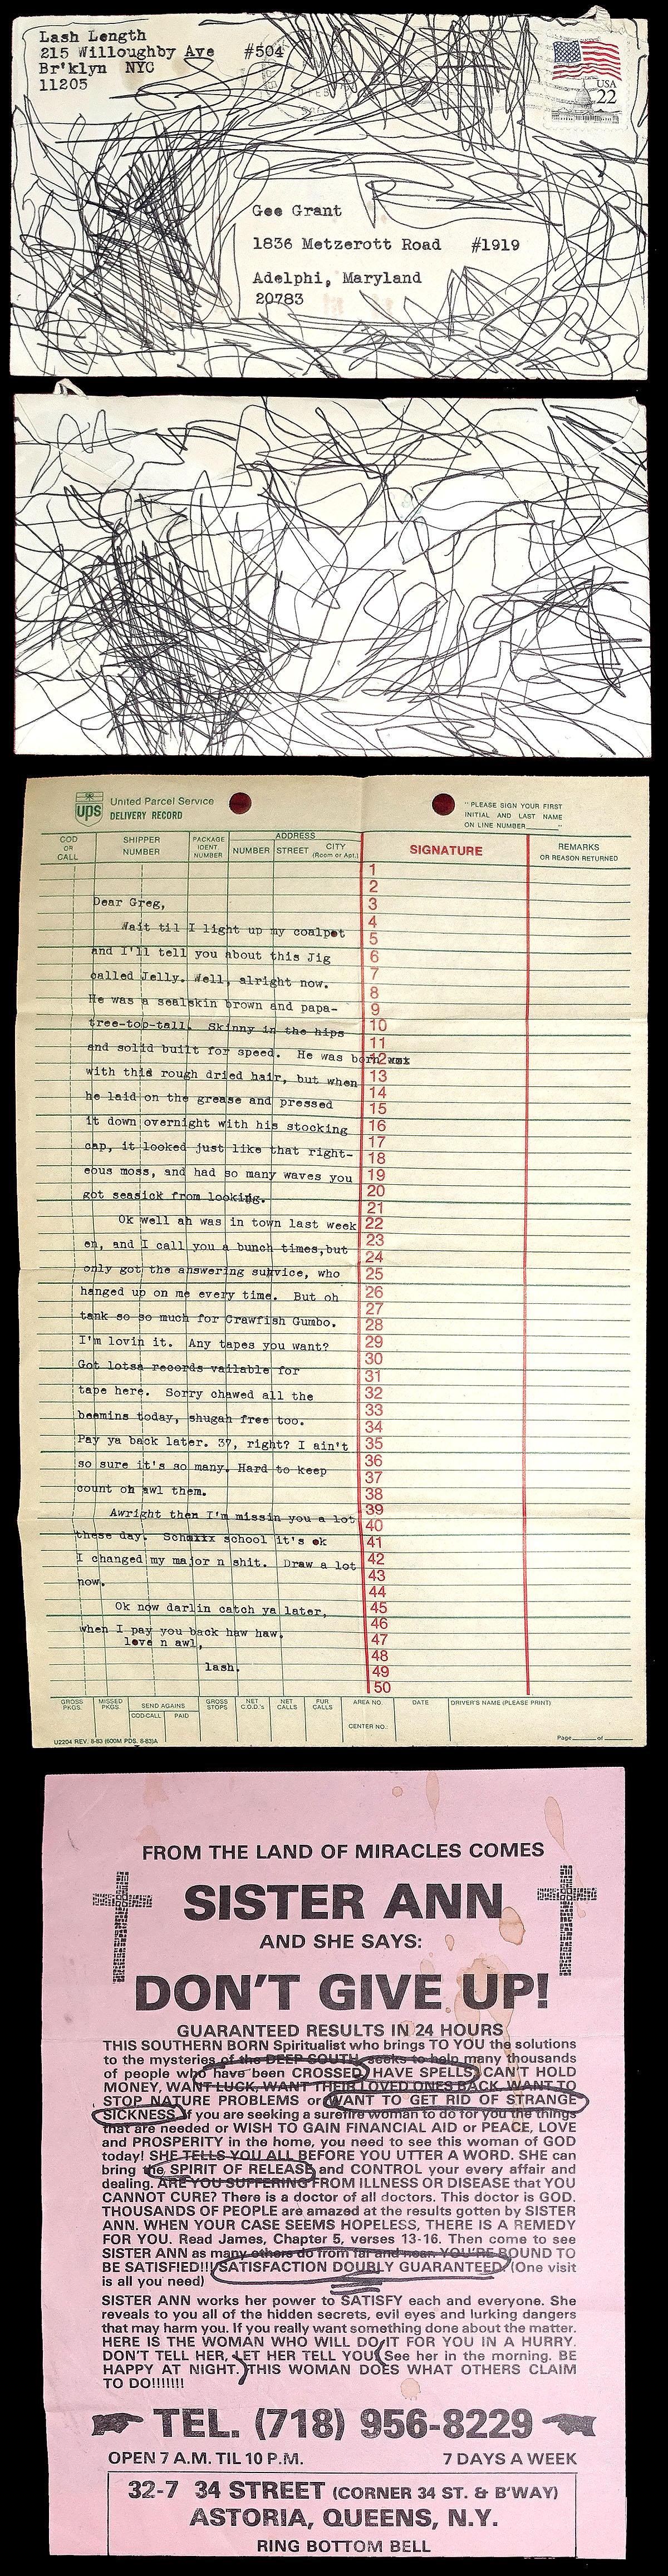 Lash Length
215 Willoughby Ave #504
Br'klyn NYC
11205
USA
22
Gee Grant
1836 Metzerott Road #1919
Adelphi, Maryland
20783
ups
United Parcel Service
DELIVERY RECORD
"PLEASE SIGN YOUR FIRST
INITIAL AND LAST NAME
ON LINE NUMBER______"
COD OR CALL
SHIPPER NUMBER
PACKAGE IDENT. NUMBER
ADDRESS
NUMBER STREET CITY (Room or Apt.)
SIGNATURE
REMARKS
OR REASON RETURNED
1
2
Dear Greg, 3
4
Wait til I light up my coalpot
5
and I'll tell you about this Jig 6
called Jelly. Well, alright now. 7
8
He was a sealskin brown and papa- 9
tree-top-tall. Skinny in the hips 10
11
and solid built for speed. He was born wxx
12
with this rough dried hair, but when 13
14
he laid on the grease and pressed 15
it down overnight with his stocking 16
17
cap, it looked just like that right- 18
eous moss, and had so many waves you 19
got seasick from looking. 20
21
Ok well ah was in town last week 22
23
en, and I call you a bunch times,but
24
only got the answering survice, who 25
hanged up on me every time. But oh 26
27
tank so so much for Crawfish Gumbo. 28
I'm lovin it. Any tapes you want? 29
30
Got lotsa records vailable for 31
tape here. Sorry chawed all the 32
33
beemins today, shugah free too. 34
Pay ya back later. 37, right? I ain't 35
36
so sure it's so many. Hard to keep 37
count oh awl them. 38
39
Awright then I'm missin you a lot
40
these day. school it's ok 41
I changed my major n shit. Draw a lot 42
43
now. 44
Ok now darlin catch ya later, 45
46
when I pay you back haw haw.
love n awl, 47
48
lash. 49
50
GROSS PKGS.
MISSED PKGS.
SEND AGAINS
COD-CALL PAID
GROSS STOPS
NET C.O.D.'s
NET CALLS
FUR CALLS
AREA NO.
CENTER NO.:
DATE
DRIVER'S NAME (PLEASE PRINT)
U2204 REV. 8-83 (600M PDS. 8-83)A
Page____ of ______
FROM THE LAND OF MIRACLES COMES
SISTER ANN
AND SHE SAYS:
DON'T GIVE UP!
GUARANTEED RESULTS IN 24 HOURS
THIS SOUTHERN BORN Spiritualist who brings TO YOU the solutions
to the mysteries of the DEEP SOUTH, seeks to help many thousands
of people who have been CROSSED, HAVE SPELLS, CAN'T HOLD
MONEY, WANT LUCK, WANT THEIR LOVED ONES BACK, WANT TO
STOP NATURE PROBLEMS or WANT TO GET RID OF STRANGE
SICKNESS. If you are seeking a surefire woman to do for you the things
that are needed or WISH TO GAIN FINANCIAL AID or PEACE, LOVE
and PROSPERITY in the home, you need to see this woman of GOD
today! SHE TELLS YOU ALL BEFORE YOU UTTER A WORD. SHE can
bring the SPIRIT OF RELEASE and CONTROL your every affair and
dealing. ARE YOU SUFFERING FROM ILLNESS OR DISEASE that YOU
CANNOT CURE? There is a doctor of all doctors. This doctor is GOD.
THOUSANDS OF PEOPLE are amazed at the results gotten by SISTER
ANN. WHEN YOUR CASE SEEMS HOPELESS, THERE IS A REMEDY
FOR YOU. Read James, Chapter 5, verses 13-16. Then come to see
SISTER ANN as many others do from far and near. YOU'RE BOUND TO
BE SATISFIED!!! SATISFACTION DOUBLY GUARANTEED. (One visit
is all you need)
SISTER ANN works her power to SATISFY each and everyone. She
reveals to you all of the hidden secrets, evil eyes and lurking dangers
that may harm you. If you really want something done about the matter.
HERE IS THE WOMAN WHO WILL DO IT FOR YOU IN A HURRY.
DON'T TELL HER, LET HER TELL YOU. See her in the morning. BE
HAPPY AT NIGHT. THIS WOMAN DOES WHAT OTHERS CLAIM
TO DO!!!!!!!
TEL. (718) 956-8229
OPEN 7 A.M. TIL 10 P.M. 7 DAYS A WEEK
32-7 34 STREET (CORNER 34 ST. & B'WAY)
ASTORIA, QUEENS, N.Y.
RING BOTTOM BELL